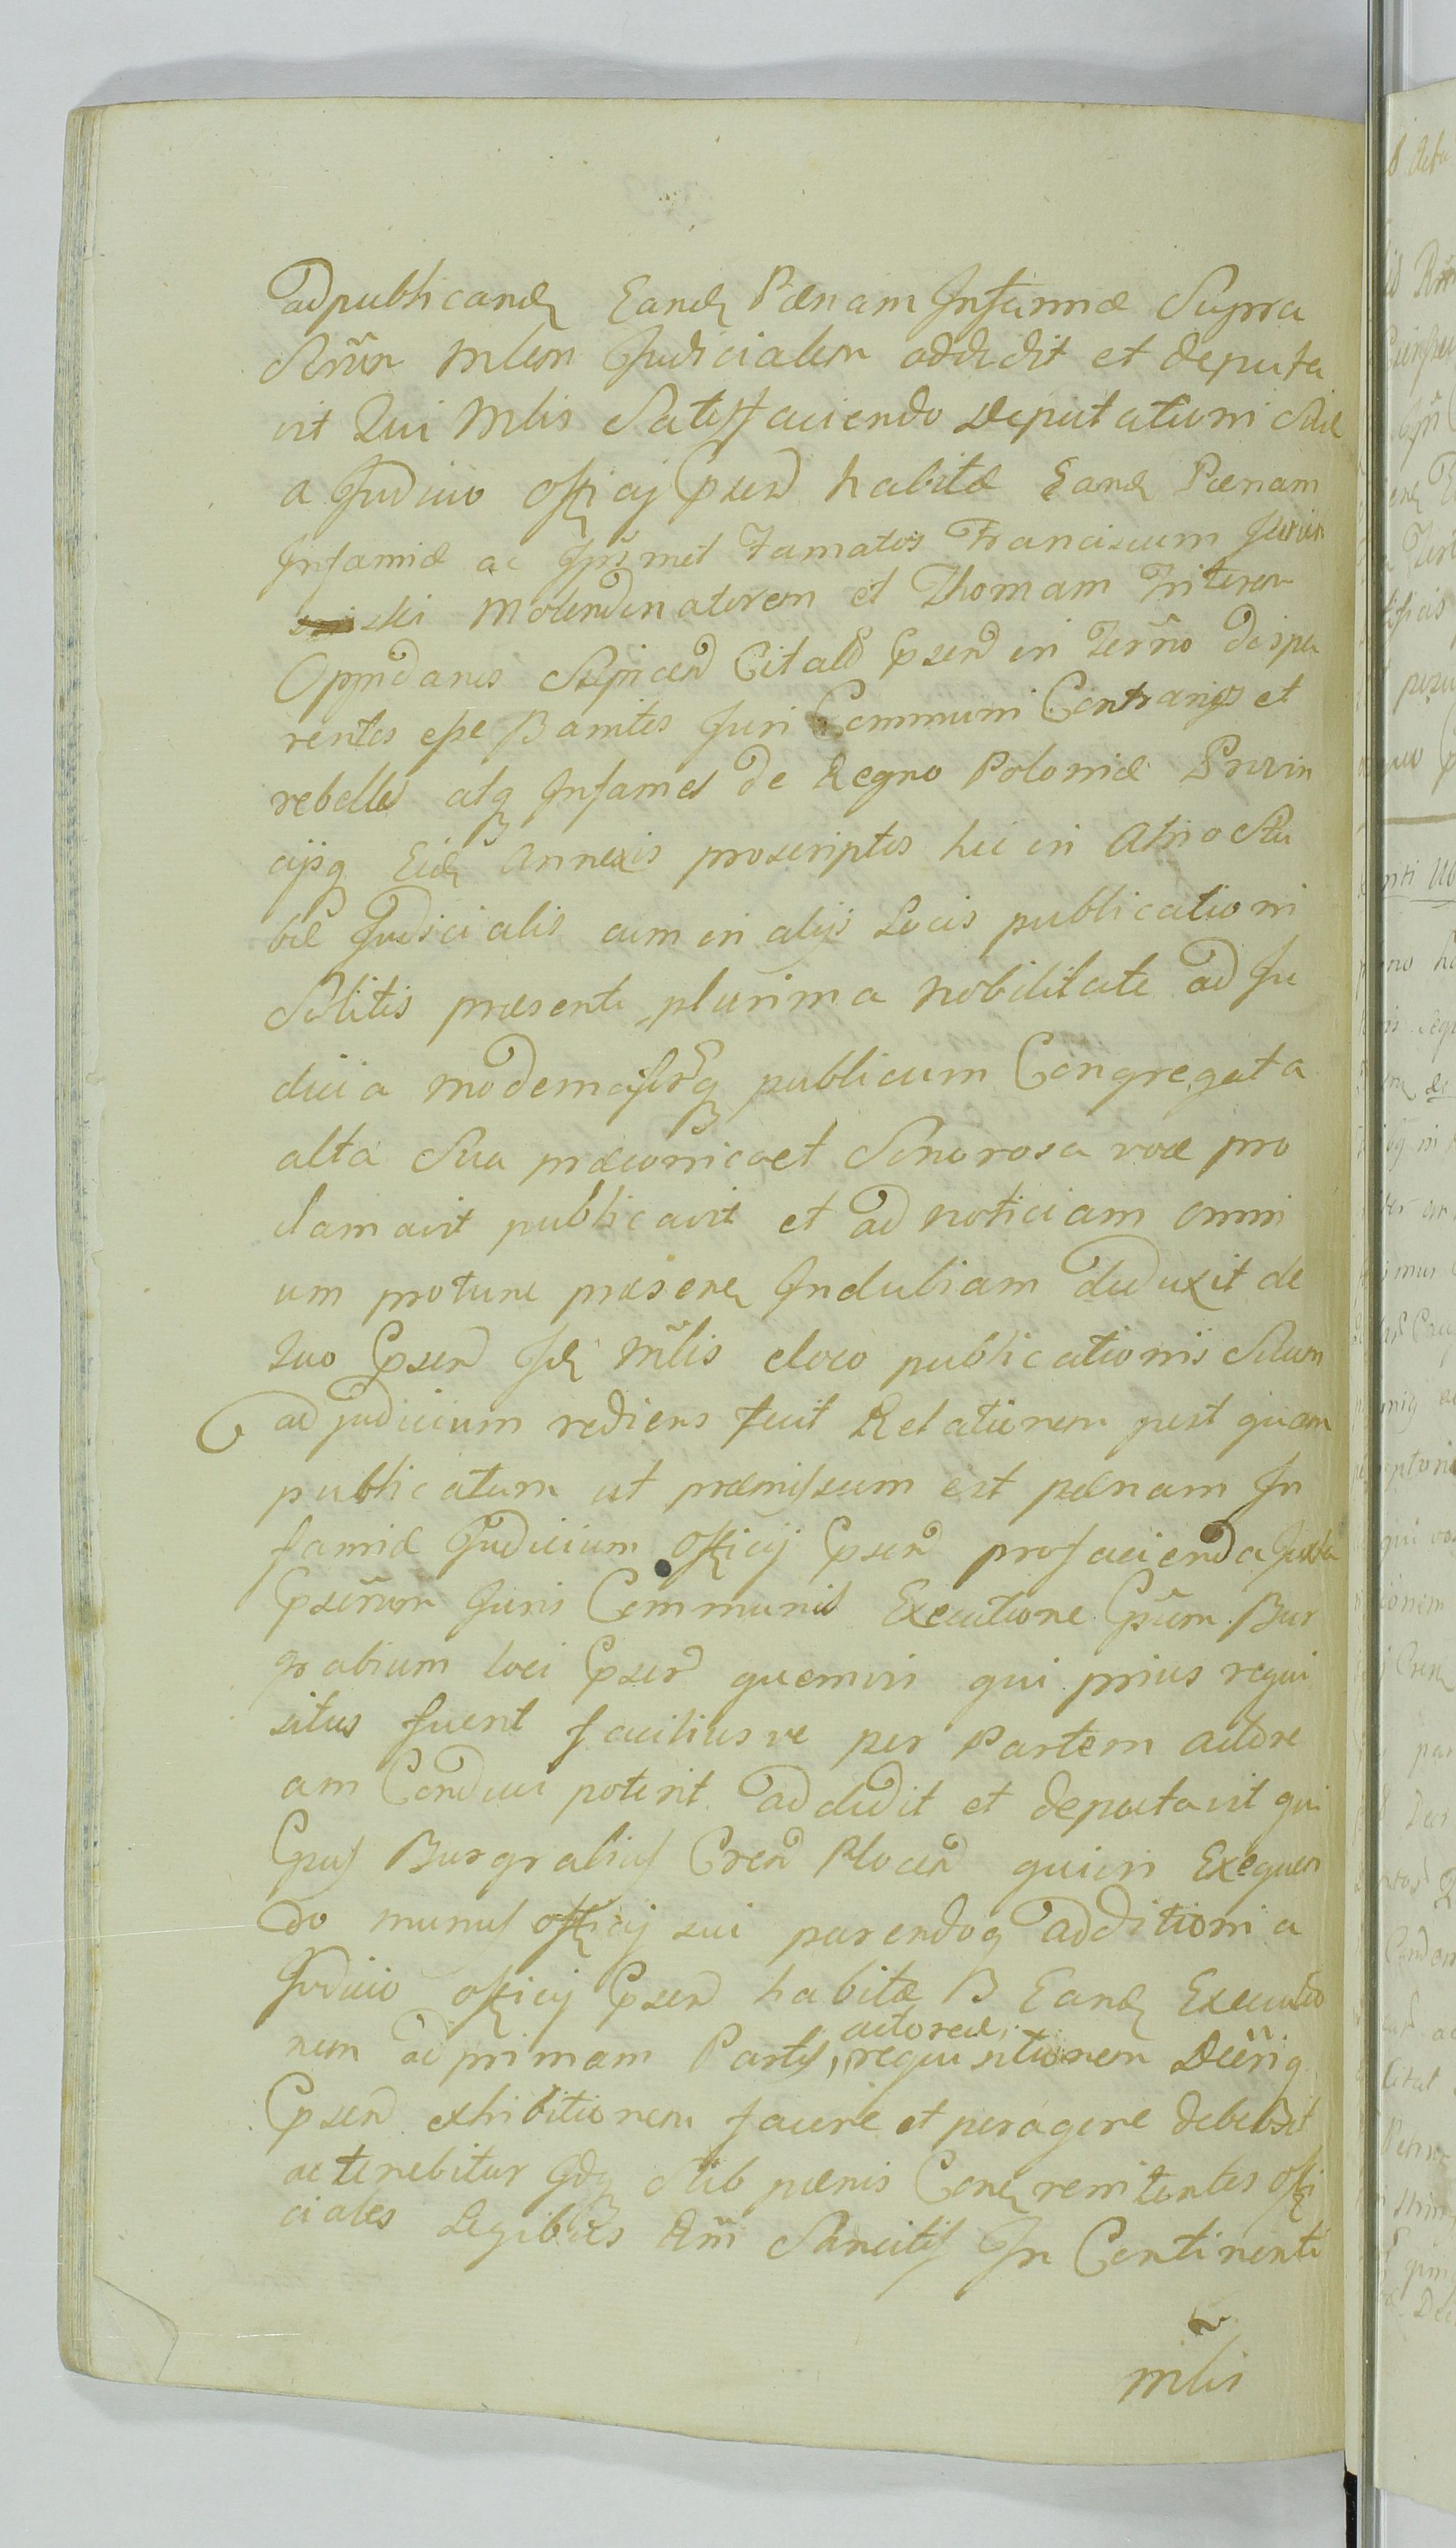 ad publicand Eand Pænam Infamiæ Supra
Mlem Judicialem addidit et deputa
vit Qui Mlis Satisfaciendo Deputationi Suæ
a Judicio Officij Prsen habitæ Eand Pænam
Infamiæ ac Ipsmet Famatos Franciscum
ski Molendinatorem et Thomam
Oppidanos Citatos Prsen in Terño
rentes esse Bannitos Juri Communi Contrarios et
rebelles atq Infames de Regno Poloniæ Provin
cijsq Eid Annexis proscriptos hic in Atrio Stu
bæ Judicialis cum in alijs Locis publicationi
Solitis præsente plurima Nobilitate ad Ju
dicia publicum Congregata
alta Sua præconica et Sonorosa voce pro
clamavit publicavit et ad noticiam omni
um protunc præsen Indubiam deduxit de
Quo Prsen Id Mlis eloco publicationis Solum
ad judicium rediens fecit Relationem post quam
publicatum ut præmissum est pænam In
famiæ Judicium Officij Prsen pro facienda Juxta
Juris Communis Executione Bur
grabium loci Prsen quemvis qui prius requi
situs fuerit faciliusve per Partem Actore
am Conduci poterit addidit et deputavit qui
Burgrabius Cren Plocen quivis Exequen
do munus officij sui parendoq additioni a
Judicio officij Prsen habitæ Eand Executio
nem ad primam Partis actoreæ requisitionem
Prsen exhibitionem facere et peragere debebit
ac tenebitur Idq Sub pænis Con renitentes offi
ciales Legibus Sancitis In Continenti
mlis